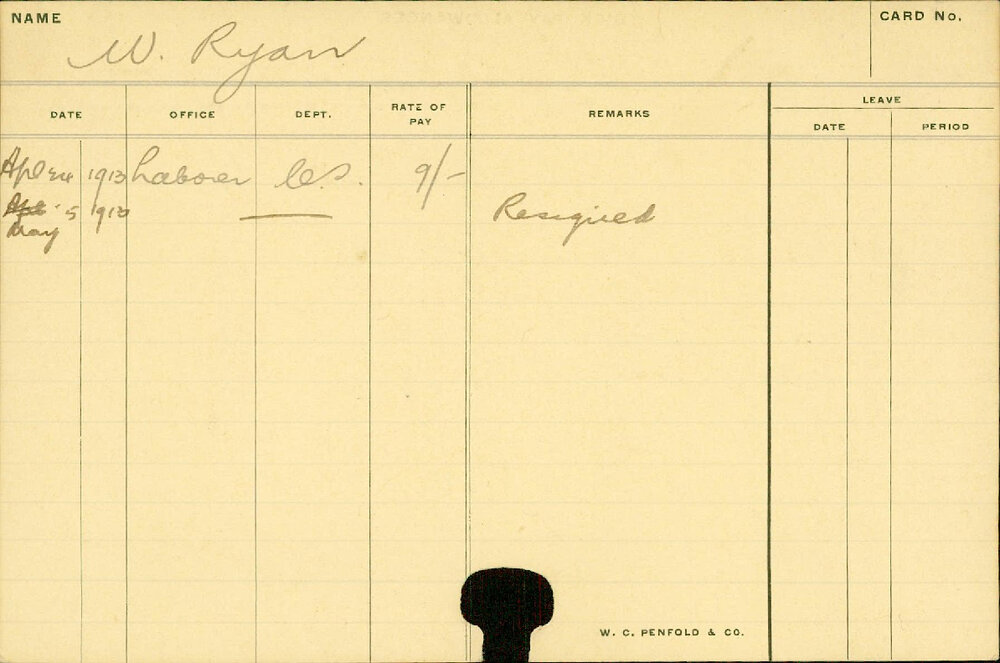 NAME
W. Ryan
CARD No.
DATE OFFICE DEPT. RATE OF PAY REMARKS LEAVE
DATE PERIOD
Apl 24 1913 Laborer C.S. 9/- 
Apl 5 1913 Resigned
May
W. C. PENFOLD & CO.